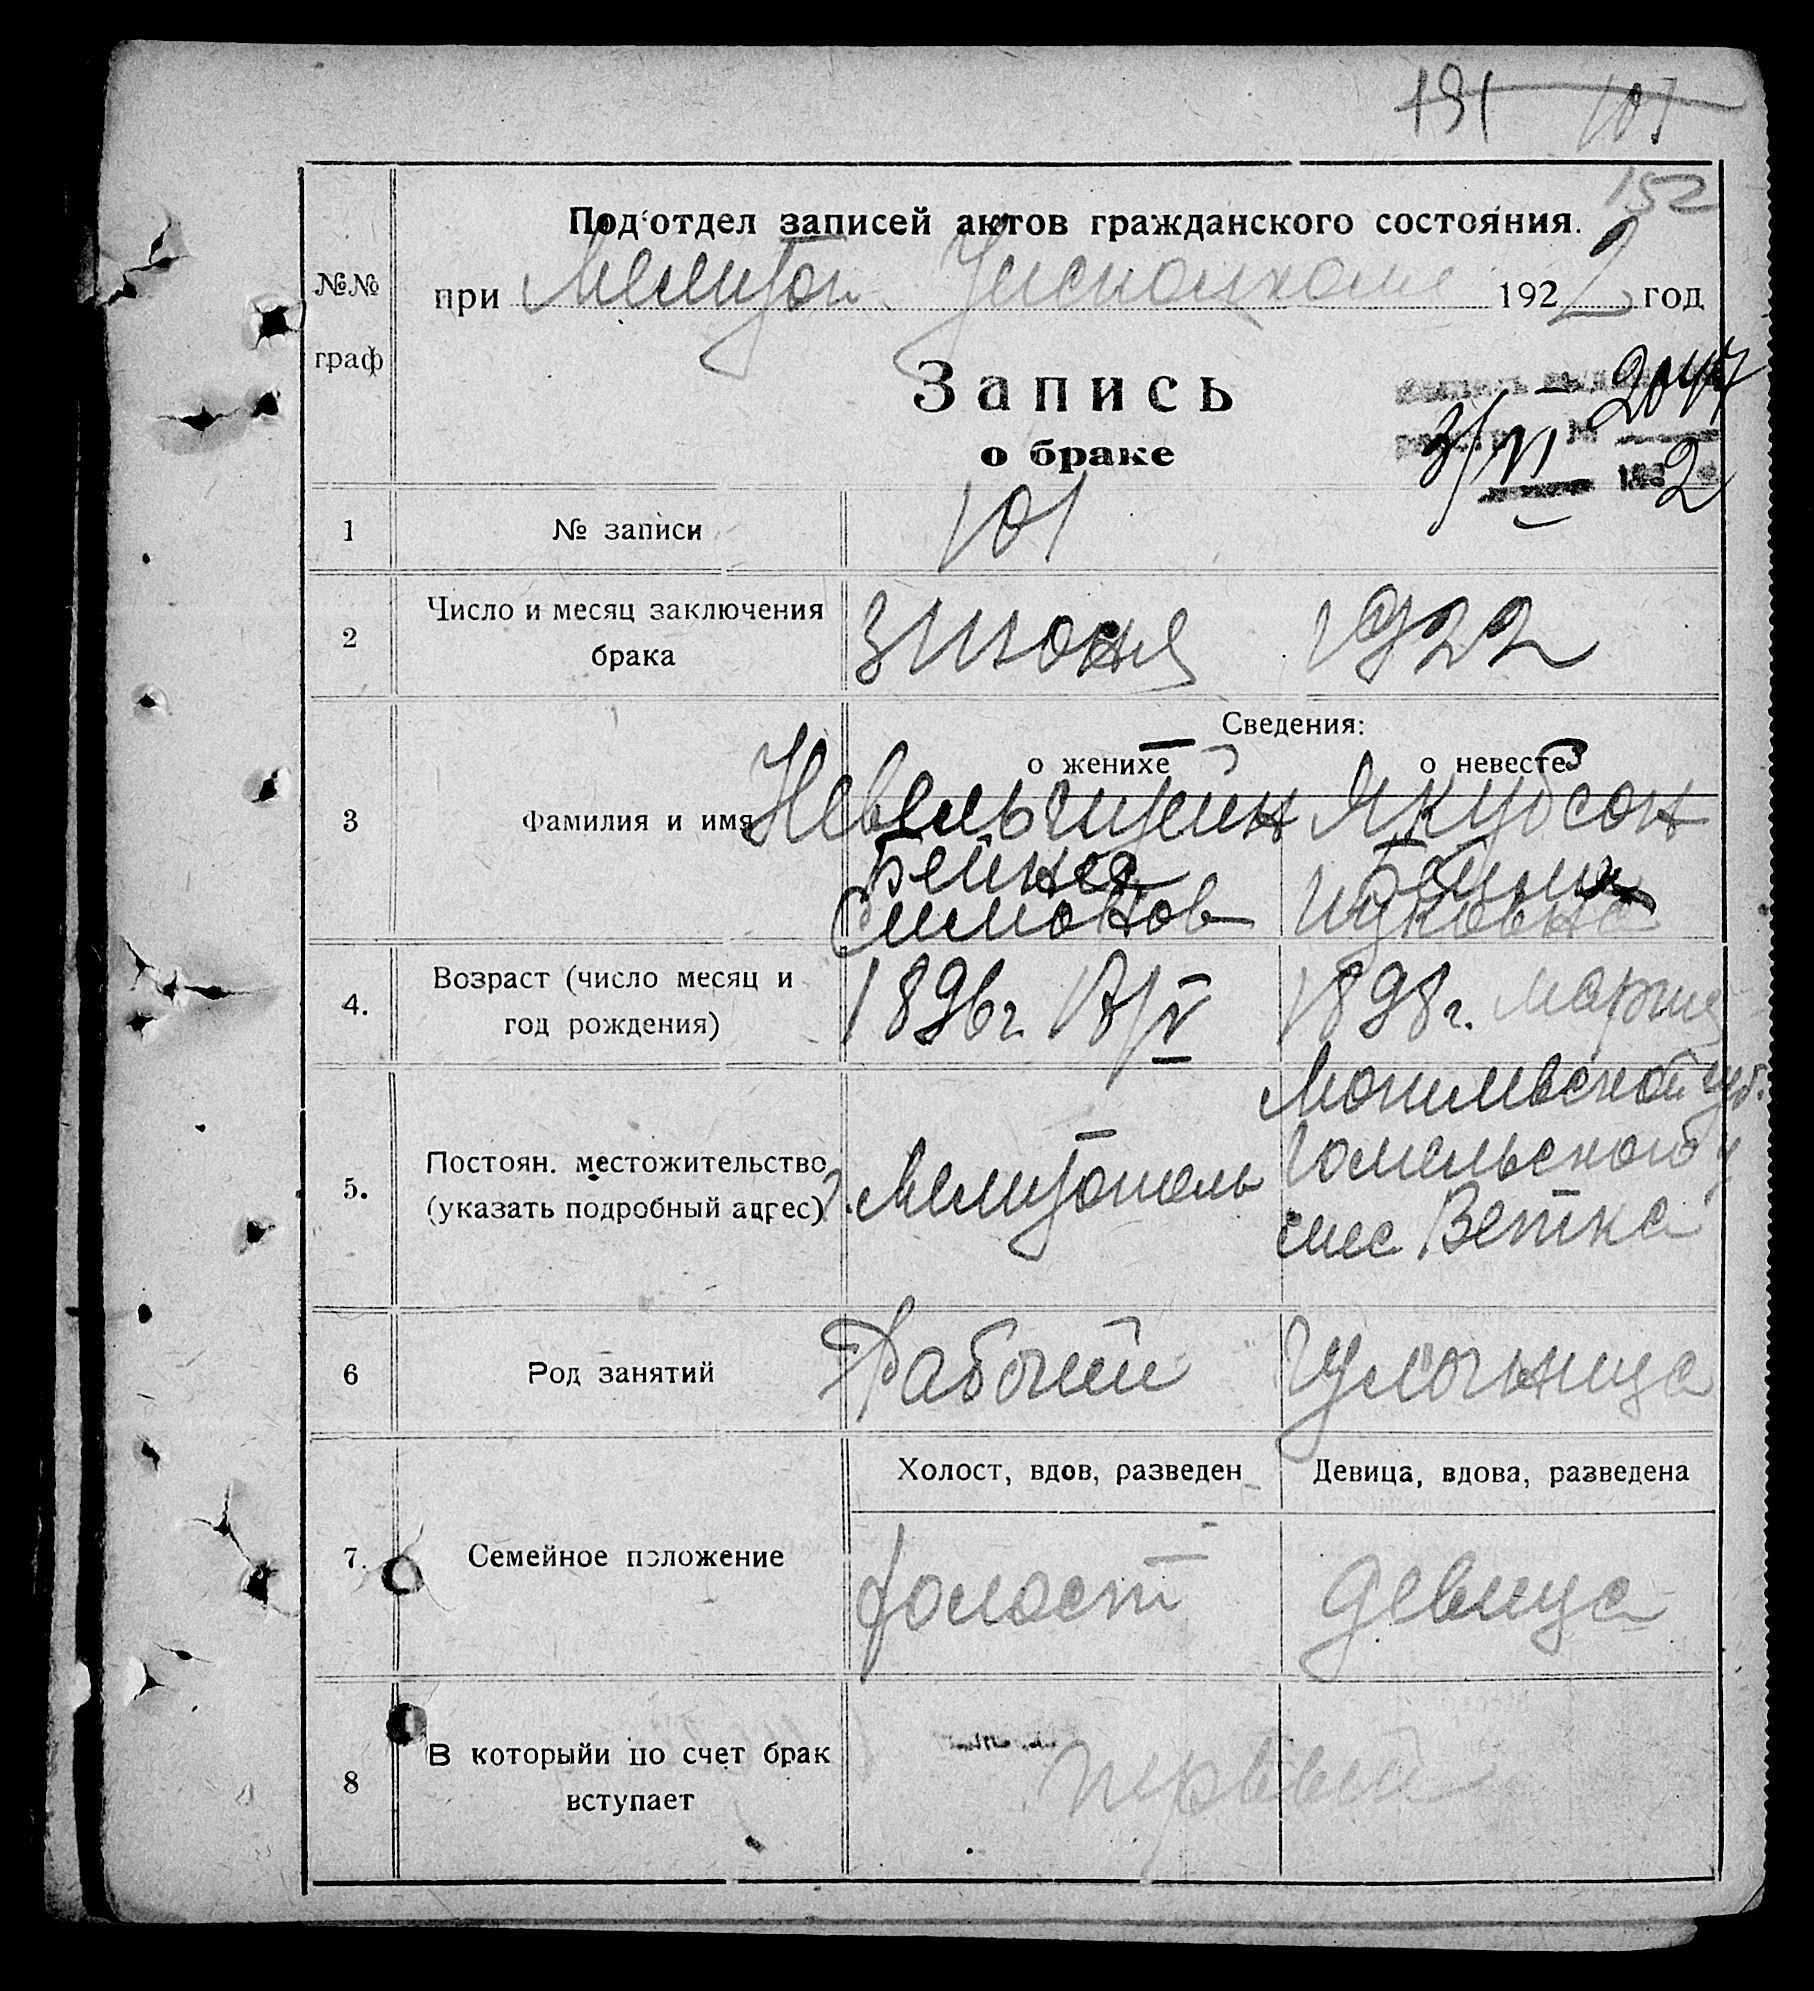 191 101
152
Подотдел записей актов гражданского состояния.
№№
граф
при Мелитоп. Уисполкоме 1922 год
Запись
о браке
3/VI 2
1 № записи 101
2 Число и месяц заключения
брака
3 июня 1922
Сведения:
о женихе о невесте
3 Фамилия и имя
Невельштейн Якубсон
Симонов Ицковна
4. Возраст (число месяц и
год рождения)
1896 г. 1898 г. марта
5. Постоян. местожительство
(указать подробный адрес)
г. Мелитополь
Могилевской губ.
Гомельского у
Ветка
6 Род занятий Рабочий Чулочница
Холост, вдов, разведен Девица, вдова, разведена
7. Семейное положение холост девица
8 В которыйи по счет брак
вступает
первый